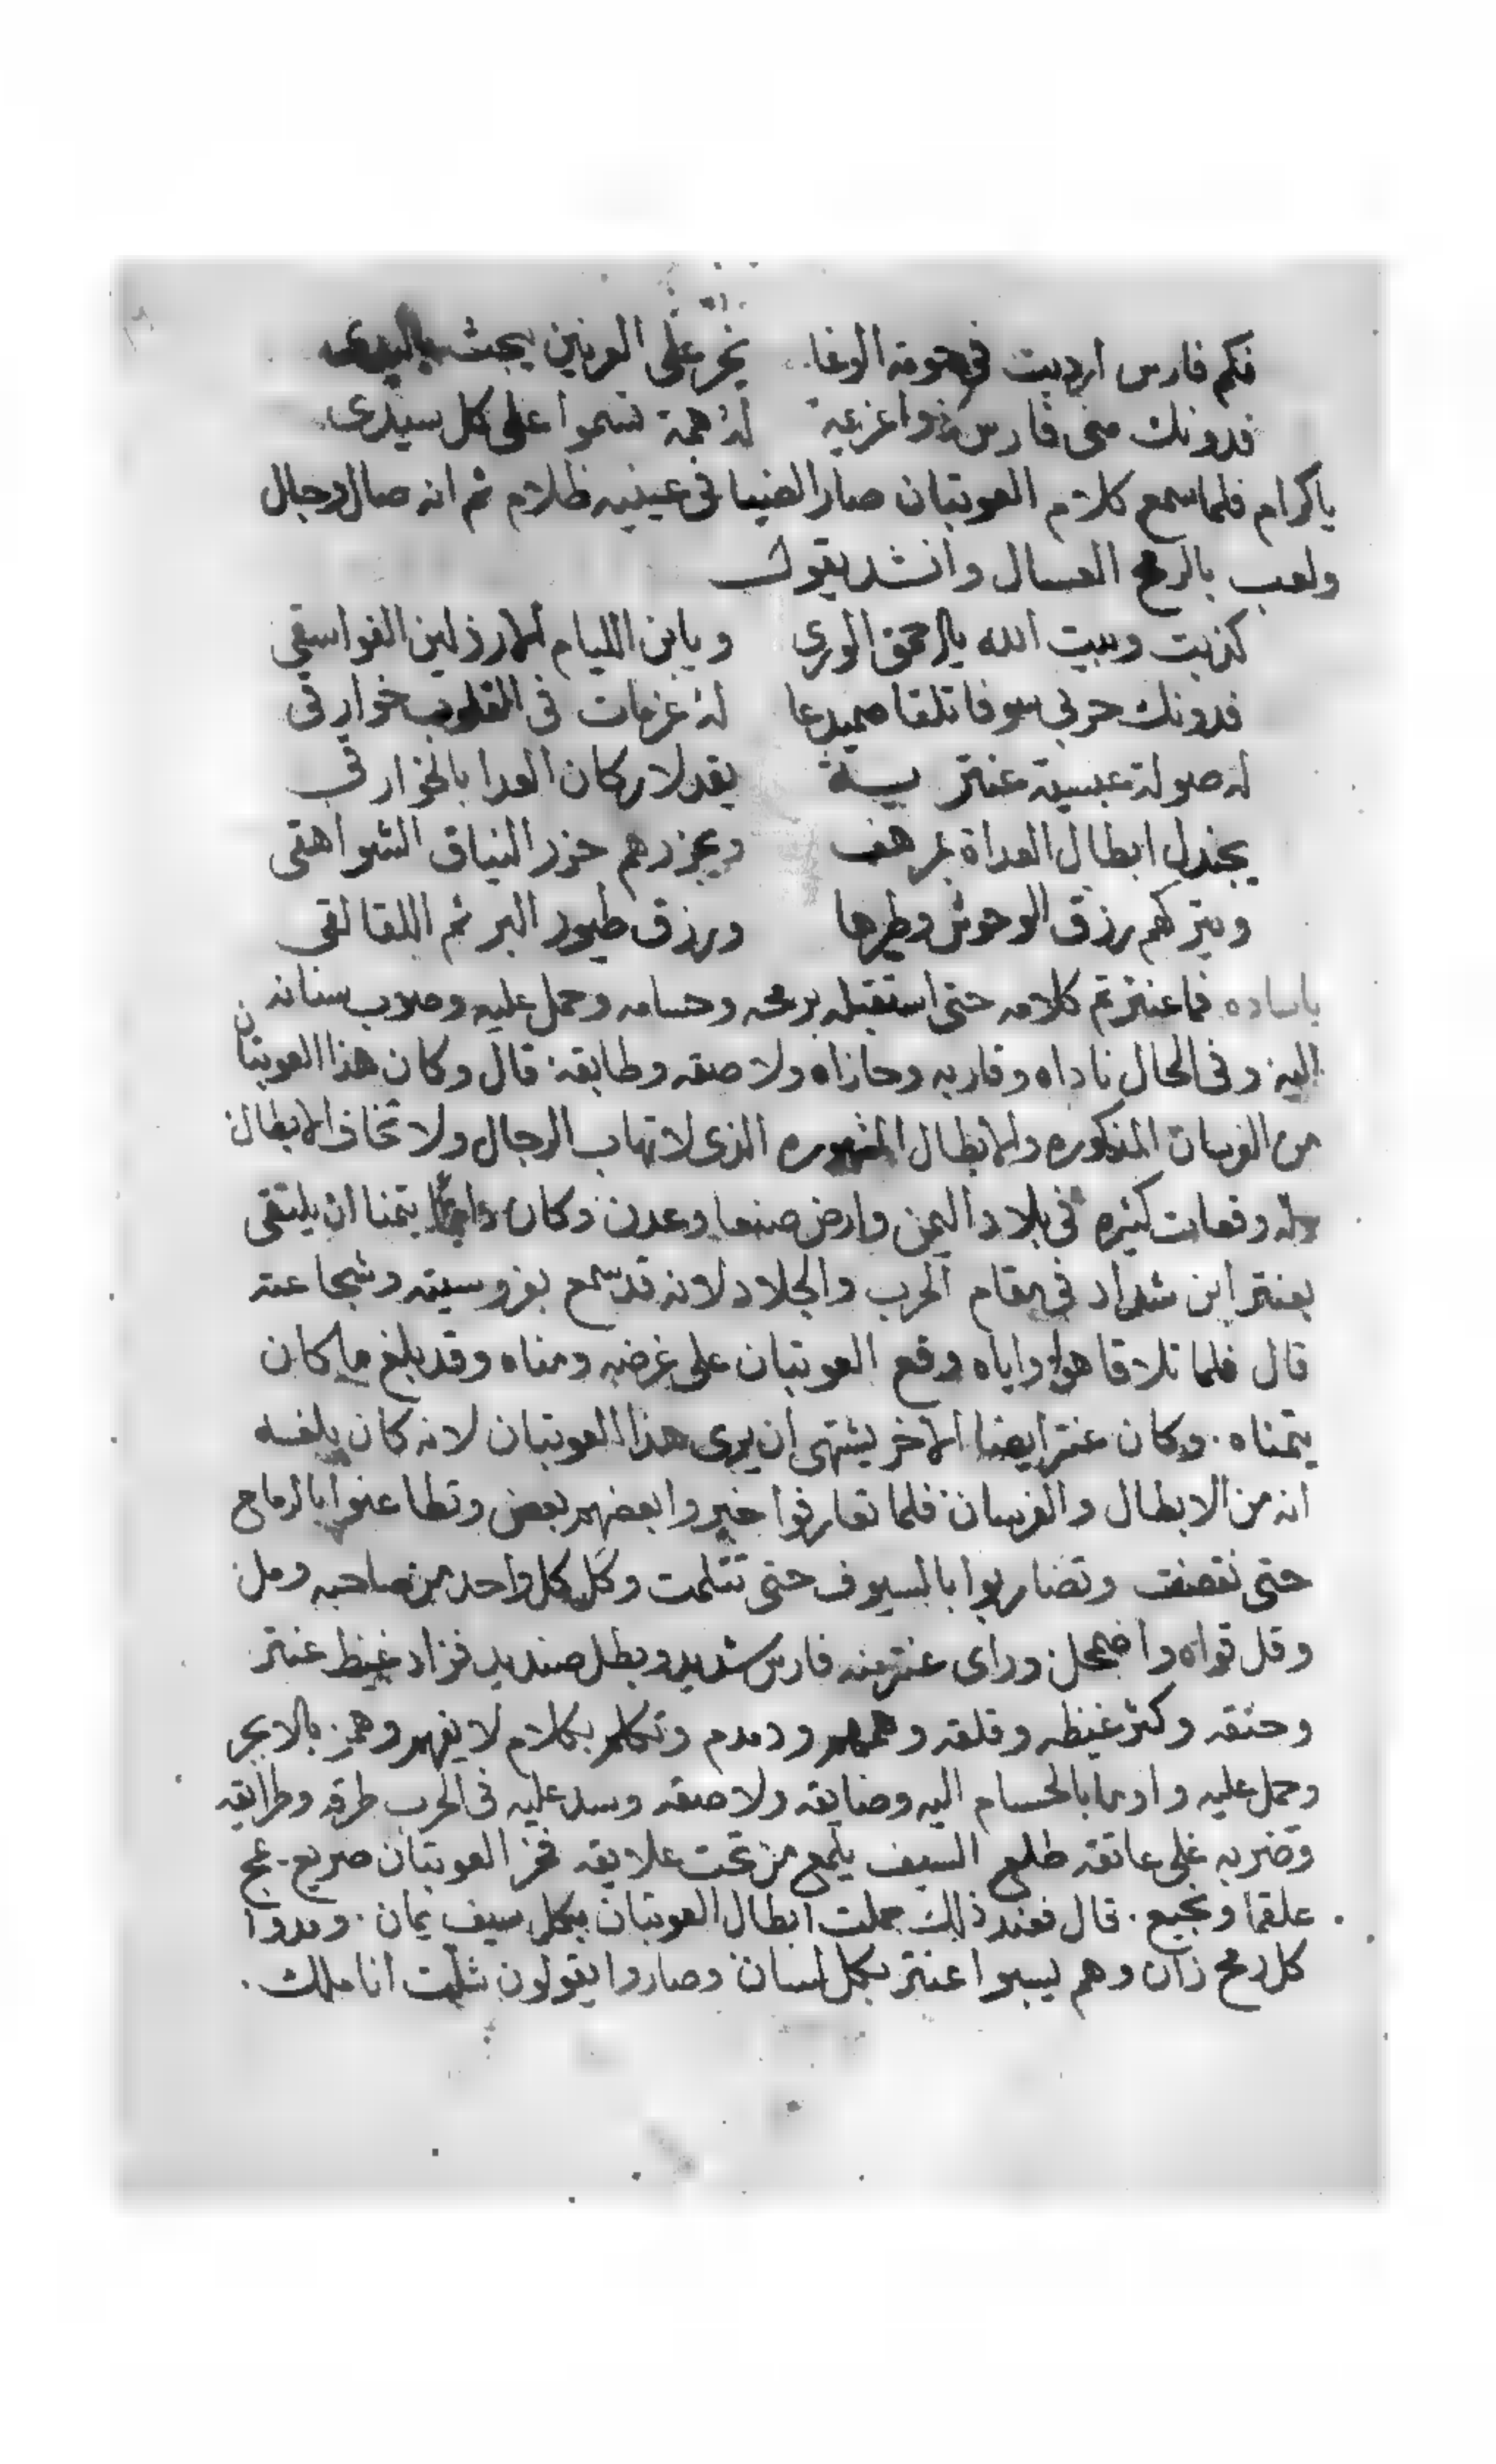 فكم فارس ارديت في حومة الوغا يخر على العرنين يبحث باليدى
فدونك منى فارس ذوا عزيمة لهُ همة تسموا على كل سيدى
ياكرام فلما سمع كلام العوتبان صار الضيا في عينيه ظلام ثم انه صال وجال
ولعب بالرمح العسال وانشد يقول
كذبت وبيت الله يالاحمق الورى ويابن الليام الارذلين الفواسقي
فدونك حربي سوفا تلقا صميدعا لهُ عزمات في القلوب خوارقى
له صولة عبسية عنتريسة يقد لاركان العدا بالخوارقى
يجندل ابطال العداة بمرهف ويجزرهم جزر النياق الشواهقى
ويتركهم رزق الوحوش وطيرها ورزق طيور البر ثم اللقالقى
ياساده فما عنتر تم كلامه حتى استقبله برمحه وحسامه وحمل عليه وصوب سنانه
اليه وفى الحال ناداه وقاربه وحازاه ولاصقه وطابقه قال وكان هذا العوتبان
من الفرسان المذكوره والابطال المشهوره الذى لا تهاب الرجال ولا تخاف الابطال
وله وقعات كثيره في بلاد اليمن وارض صنعا وعدن وكان دايمًا يتمنا ان يلتقى
بعنتر ابن شداد في مقام الحرب والجلاد لانه قد سمع بفروسيته وشجاعته
قال فلما تلاقا هوا واياه وقع العوتبان على غرضه ومناه وقد بلغ ما كان
يتمناه. وكان عنتر ايضا الاخر يشتهى ان يرى هذا العوتبان لانه كان بلغه
انه من الابطال والفرسان فلما تعارفوا خبروا بعضهم بعض وتطاعنوا بالرماح
حتى تقصفت وتضاربوا بالسيوف حتى تثلمت وكل كل واحد من صاحبه ومل
وقل قواه واضمحل وراى عنتر منه فارس شديد وبطل صنديد فزاد غيظ عنتر
وحنقه وكثر غيظه وقلقه وهمهم ودمدم وتكلم بكلام لا يفهم وهمز بالابجر
وحمل عليه واوما بالحسام اليه وضايقه ولاصقه وسد عليه في الحرب طرقه وطرايقه
وضربه على عاتقه طلع السيف يلمع من تحت علايقه فخر العوتبان صريع. يمج
علقما ونجيع. قال فعند ذلك حملت ابطال العوتبان بكل سيف يمان. ومدوا
كل رمح زان وهم يسبوا عنتر بكل لسان وصاروا يقولون شلت اناملك.